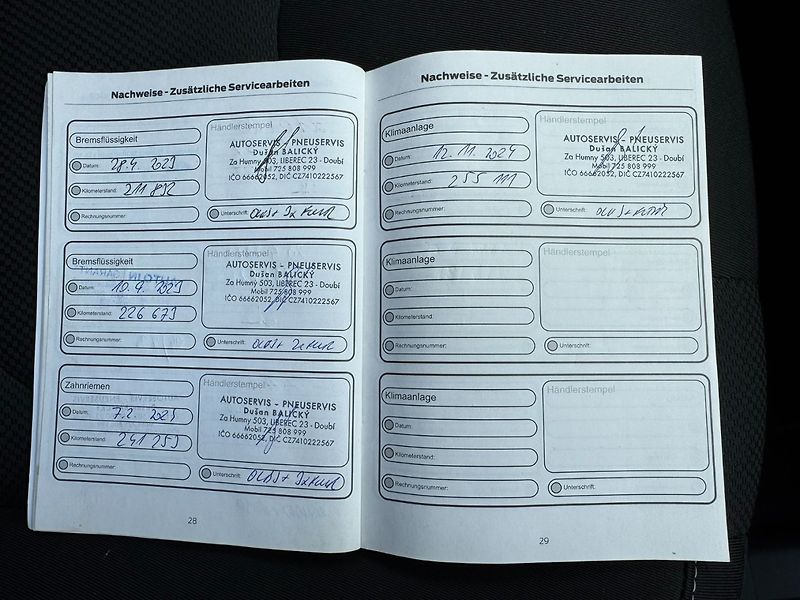 Nachweise - Zusätzliche Servicearbeiten
Bremsflüssigkeit
Datum: 28.4. 2023
Kilometerstand: 211 892
Rechnungsnummer:
Händlerstempel
AUTOSERVIS – PNEUSERVIS
Dušan BALICKÝ
Za Humny 503, LIBEREC 23 - Doubí
Mobil 725 808 999
IČO 66662052, DIČ CZ7410222567
Unterschrift:
Bremsflüssigkeit
Datum: 10.9. 2023
Kilometerstand: 226 673
Rechnungsnummer:
Händlerstempel
AUTOSERVIS – PNEUSERVIS
Dušan BALICKÝ
Za Humny 503, LIBEREC 23 - Doubí
Mobil 725 808 999
IČO 66662052, DIČ CZ7410222567
Unterschrift:
Zahnriemen
Datum: 7.2.
Kilometerstand: 241 253
Rechnungsnummer:
Händlerstempel
AUTOSERVIS – PNEUSERVIS
Dušan BALICKÝ
Za Humny 503, LIBEREC 23 - Doubí
Mobil 725 808 999
IČO 66662052, DIČ CZ7410222567
Unterschrift:
28
Nachweise - Zusätzliche Servicearbeiten
Klimaanlage
Datum: 12. 11. 2024
Kilometerstand: 255 111
Rechnungsnummer:
Händlerstempel
AUTOSERVIS – PNEUSERVIS
Dušan BALICKÝ
Za Humny 503, LIBEREC 23 - Doubí
Mobil 725 808 999
IČO 66662052, DIČ CZ7410222567
Unterschrift:
Klimaanlage
Datum:
Kilometerstand:
Rechnungsnummer:
Händlerstempel
Unterschrift:
Klimaanlage
Datum:
Kilometerstand:
Rechnungsnummer:
Händlerstempel
Unterschrift:
29